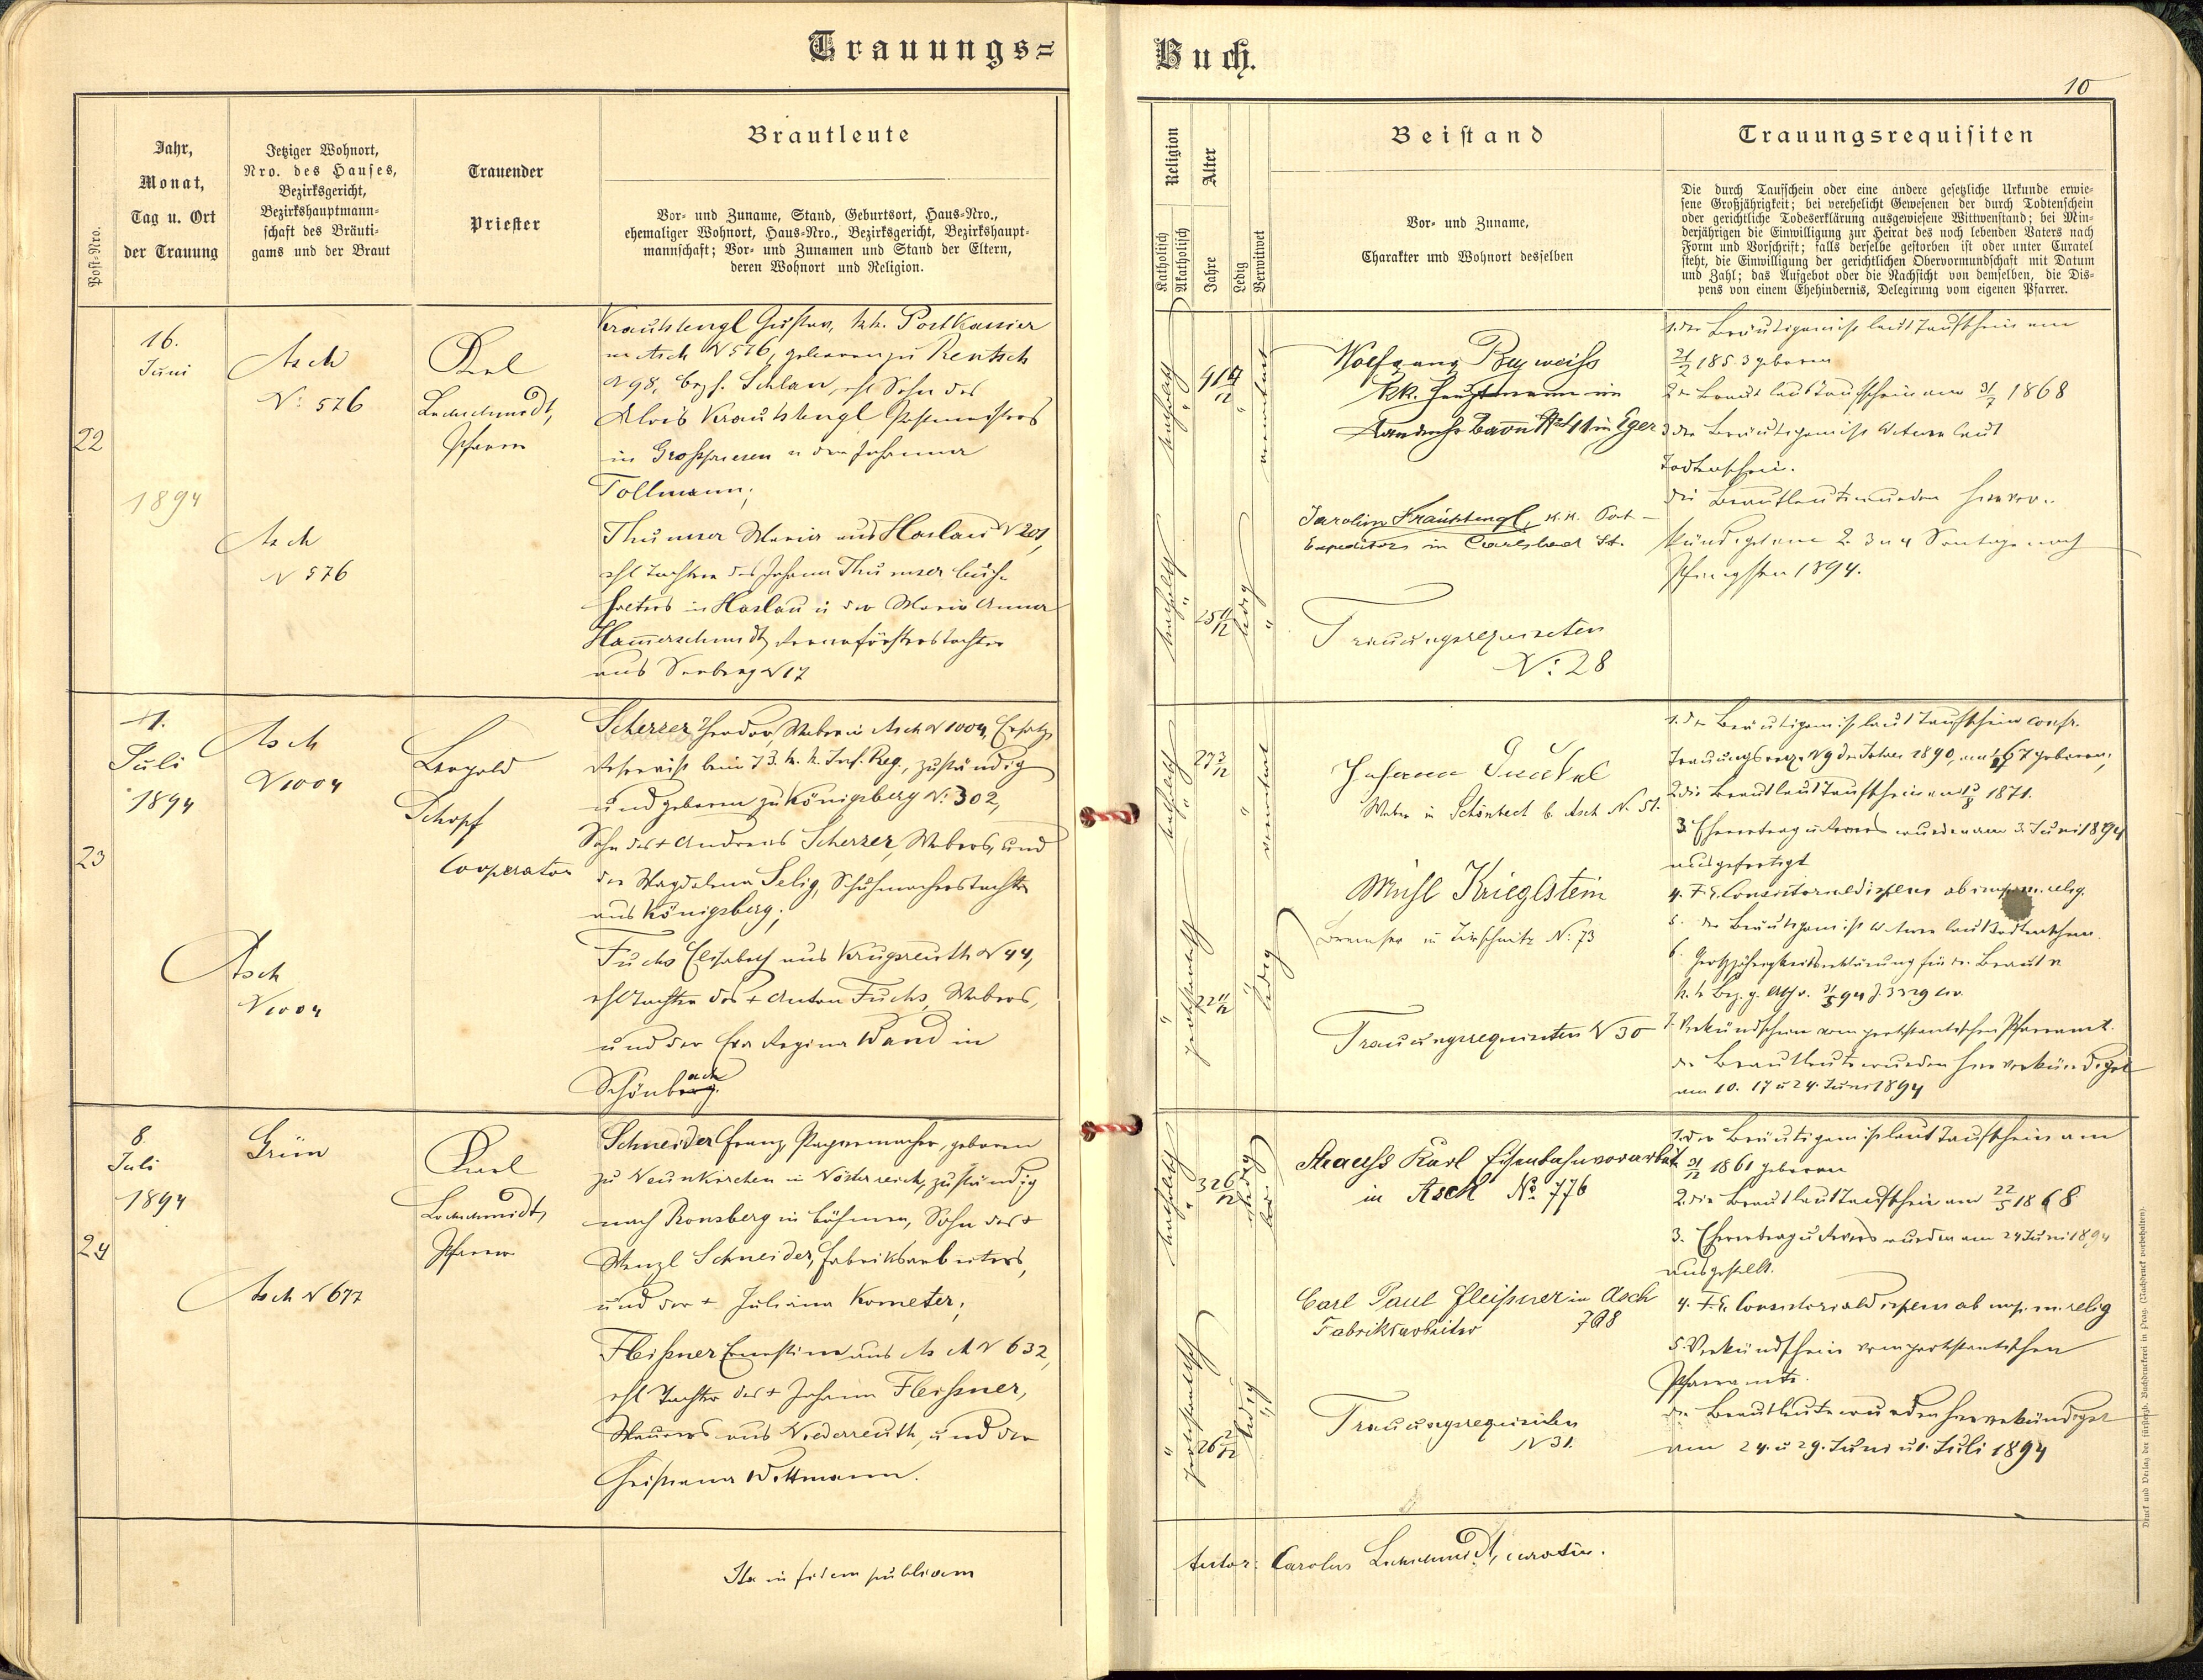 Trauungs=
Buch.
10
Post=Nro.
Jahr,
Monat,
Tag u. Ort
der Trauung
Jetziger Wohnort,
Nro. des Hauses,
Bezirksgericht,
Bezirkshauptmann=
schaft des Bräuti=
gams und der Braut
Trauender
Priester
Brautleute
Vor= und Zuname, Stand, Geburtsort, Haus=Nro.,
ehemaliger Wohnort, Haus=Nro., Bezirksgericht, Bezirkshaupt=
mannschaft; Vor= und Zunamen und Stand der Eltern,
deren Wohnort und Religion.
Religion
Katholisch
Akatholisch
Alter
Jahre
Ledig
Verwitwet
Beistand
Vor= und Zuname,
Charakter und Wohnort desselben
Trauungsrequisiten
Die durch Taufschein oder eine andere gesetzliche Urkunde erwie=
sene Großjährigkeit; bei verehelicht Gewesenen der durch Todtenschein
oder gerichtliche Todeserklärung ausgewiesene Wittwenstand; bei Min=
derjährigen die Einwilligung zur Heirat des noch lebenden Vaters nach
Form und Vorschrift; falls derselbe gestorben ist oder unter Curatel
steht, die Einwilligung der gerichtlichen Obervormundschaft mit Datum
und Zahl; das Aufgebot oder die Nachsicht von demselben, die Dis=
pens von einem Ehehindernis, Delegirung vom eigenen Pfarrer.
22
16.
Juni
1894
Asch
N: 576
Asch
N 576
Karl
Pfarrer
Krauhstengl Gustav, k.k. Postkassier
in Asch N 576, geboren zu Rentsch
N 98, Bezh. Schlan, ehl Sohn des
Alois Krauhstengl Postmeisters
in Grosspriesen u der Johanna
Tollmann;
Thumser Maria aus Haslau N 201,
ehl Tochter des Johann Thumser
in Haslau u der Maria Anna
Hamerschmidt
aus Seeberg N 17
katholisch
"
verwitwet
katholisch
25 11/12
ledig
Wolfgang
k.k. Hauptmann im
in Eger
k.k. Post-
Expeditors in Carlsbad
Trauungsrequisiten
N: 28
1. der Bräutigam ist laut Taufschein am
1853 geboren
2. die Braut laut Taufschein am 31/7 1868
3 der Bräutigam ist Witwer laut
Todtenschein.
die Brautleute wurden hier ver=
kündigt am 2. 3 u 4 Sontage nach
Pfingsten 1894.
23
1.
Juli
1894
Asch
N 1004
Asch
N 1004
Leopold
Schopf
Cooperator
Scherzer Theodor, Weber in Asch N 1004, Ersatz
Reservist beim 73. k. k. Inf. Reg., zuständig
und geboren zu Königsberg N: 302,
Sohn des + Andreas Scherzer, Webers, und
der Magdalena Selig, Schuhmacherstochter
aus Königsberg;
Fuchs Elisabeth aus Krugsreuth N 44,
ehl Tochter des + Anton Fuchs, Webers,
und der Eva Regina Wand in
Schönbach
katholisch
27 3/12
verwitwet
protestantisch
22 11/12
ledig
Johann Gunkel
Weber in Schönbach b. Asch N. 51.
Krieglstein
Bremser in Tirschnitz N: 73
Trauungsrequisiten N 30
1. der Bräutigam ist laut Taufschein
Trauungsreq. N 9 des Jahres 1890, geboren;
2 die Braut laut Taufschein 1871.
3. Ehevertrag u Revers wurden am 3. Juni 1894
ausgefertigt
4. F. E. Consistorialdispens ab imp. m. relig.
5. der Bräutigam ist Witwer laut Todtenschein.
6. Großjährigkeitserklärung für die Braut v
k. k. Bez. g. Asch
7. Verkündschein vom protestantischen Pfarramt.
die Brautleute wurden hier verkündigt
am 10. 17 u 24. Juni 1894
24
8.
Juli
1894
Grün
Asch N 677
Karl
Pfarrer
Schneider Franz, Papiermacher, geboren
zu Neunkirchen in Nösterreich, zuständig
nach Ronsberg in Böhmen, Sohn des +
Wenzl Schneider, Fabriksarbeiters,
und der + Juliana Kometer;
Fleißner Ernestine aus Asch N 632,
ehl Tochter des + Johann Fleißner,
Maurers aus Niederreuth, und der
Christiana Wettmann.
katholisch
32 6/12
ledig
protestantisch
26 2/12
ledig
Strauss Karl Eisenbahnvorarbeit
in Asch No 776
Carl Paul Fleißner in Asch
Fabriksarbeiter 768
Trauungsrequisiten
N 31.
1. der Bräutigam ist laut Taufschein am
1861 geboren
2. die Braut laut Taufschein am 22/5 1868
3. Ehevertrag u Revers wurden am 24 Juni 1894
ausgestellt.
4. F. E. Consistorialdispens ab imp. m. relig
5. Verkündschein vom protestantischen
Pfarramte.
die Brautleute wurden hier verkündigt
am 24. u 29. Juni u 1. Juli 1894
Ita in fidem publicam
testor: Carolus
Druck und Verlag der fürsterzb. Buchdruckerei in Prag. (Nachdruck vorbehalten).